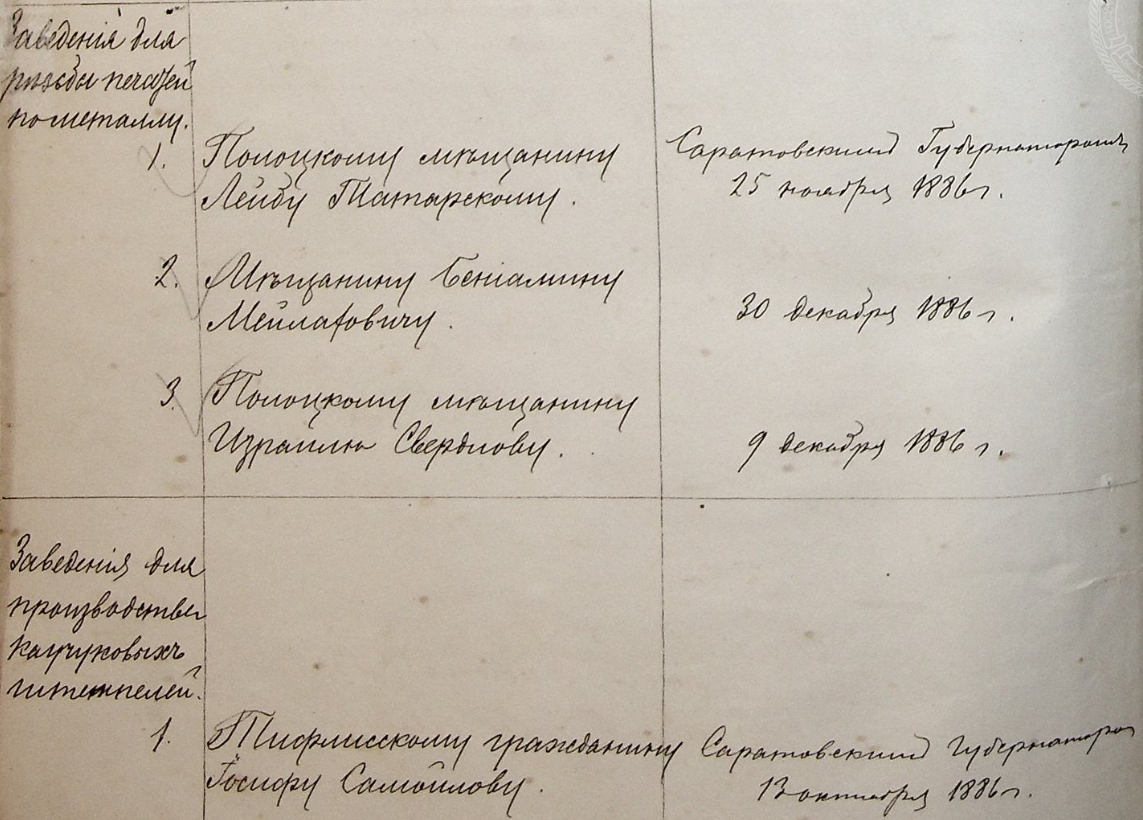 Заведенія для
рѣзьбы печатей
по металлу.
1. Полоцкому мѣщанину Саратовскимъ Губернаторомъ
Лейбу Татарскому. 25 ноября 1886 г.
2. Мѣщанину Беніамину
Мейлаховичу. 30 декабря 1886 г.
3. Полоцкому мѣщанину
Израилю Свердлову. 9 декабря 1886 г.
Заведенія для
производства
каучуковыхъ
штемпелей.
1. Тифлисскому гражданину Саратовскимъ Губернаторо
Іосифу Самойлову. 13 октября 1886 г.